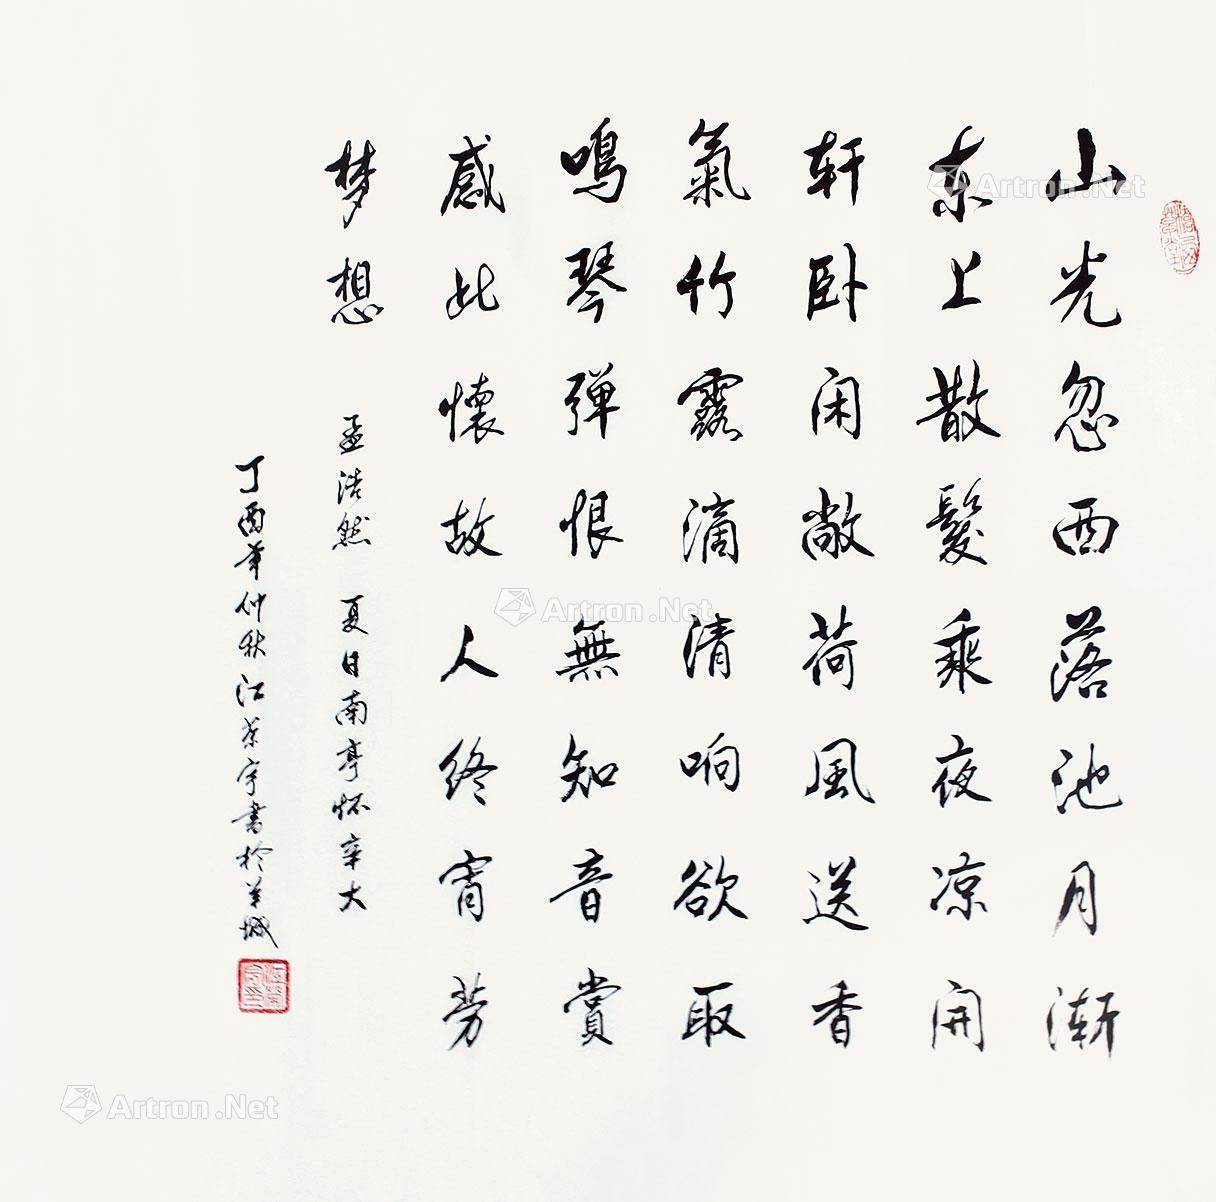 山光忽西落池月渐
东上散髮乘夜凉開
轩卧闲敞荷風送香
氣竹露滴清响欲取
鳴琴弹恨無知音賞
感此懷故人终宵劳
梦想 孟浩然 夏日南亭怀辛大
丁酉年仲秋江荣宇書於羊城
Artron.Net
Artron.Net
Artron.Net